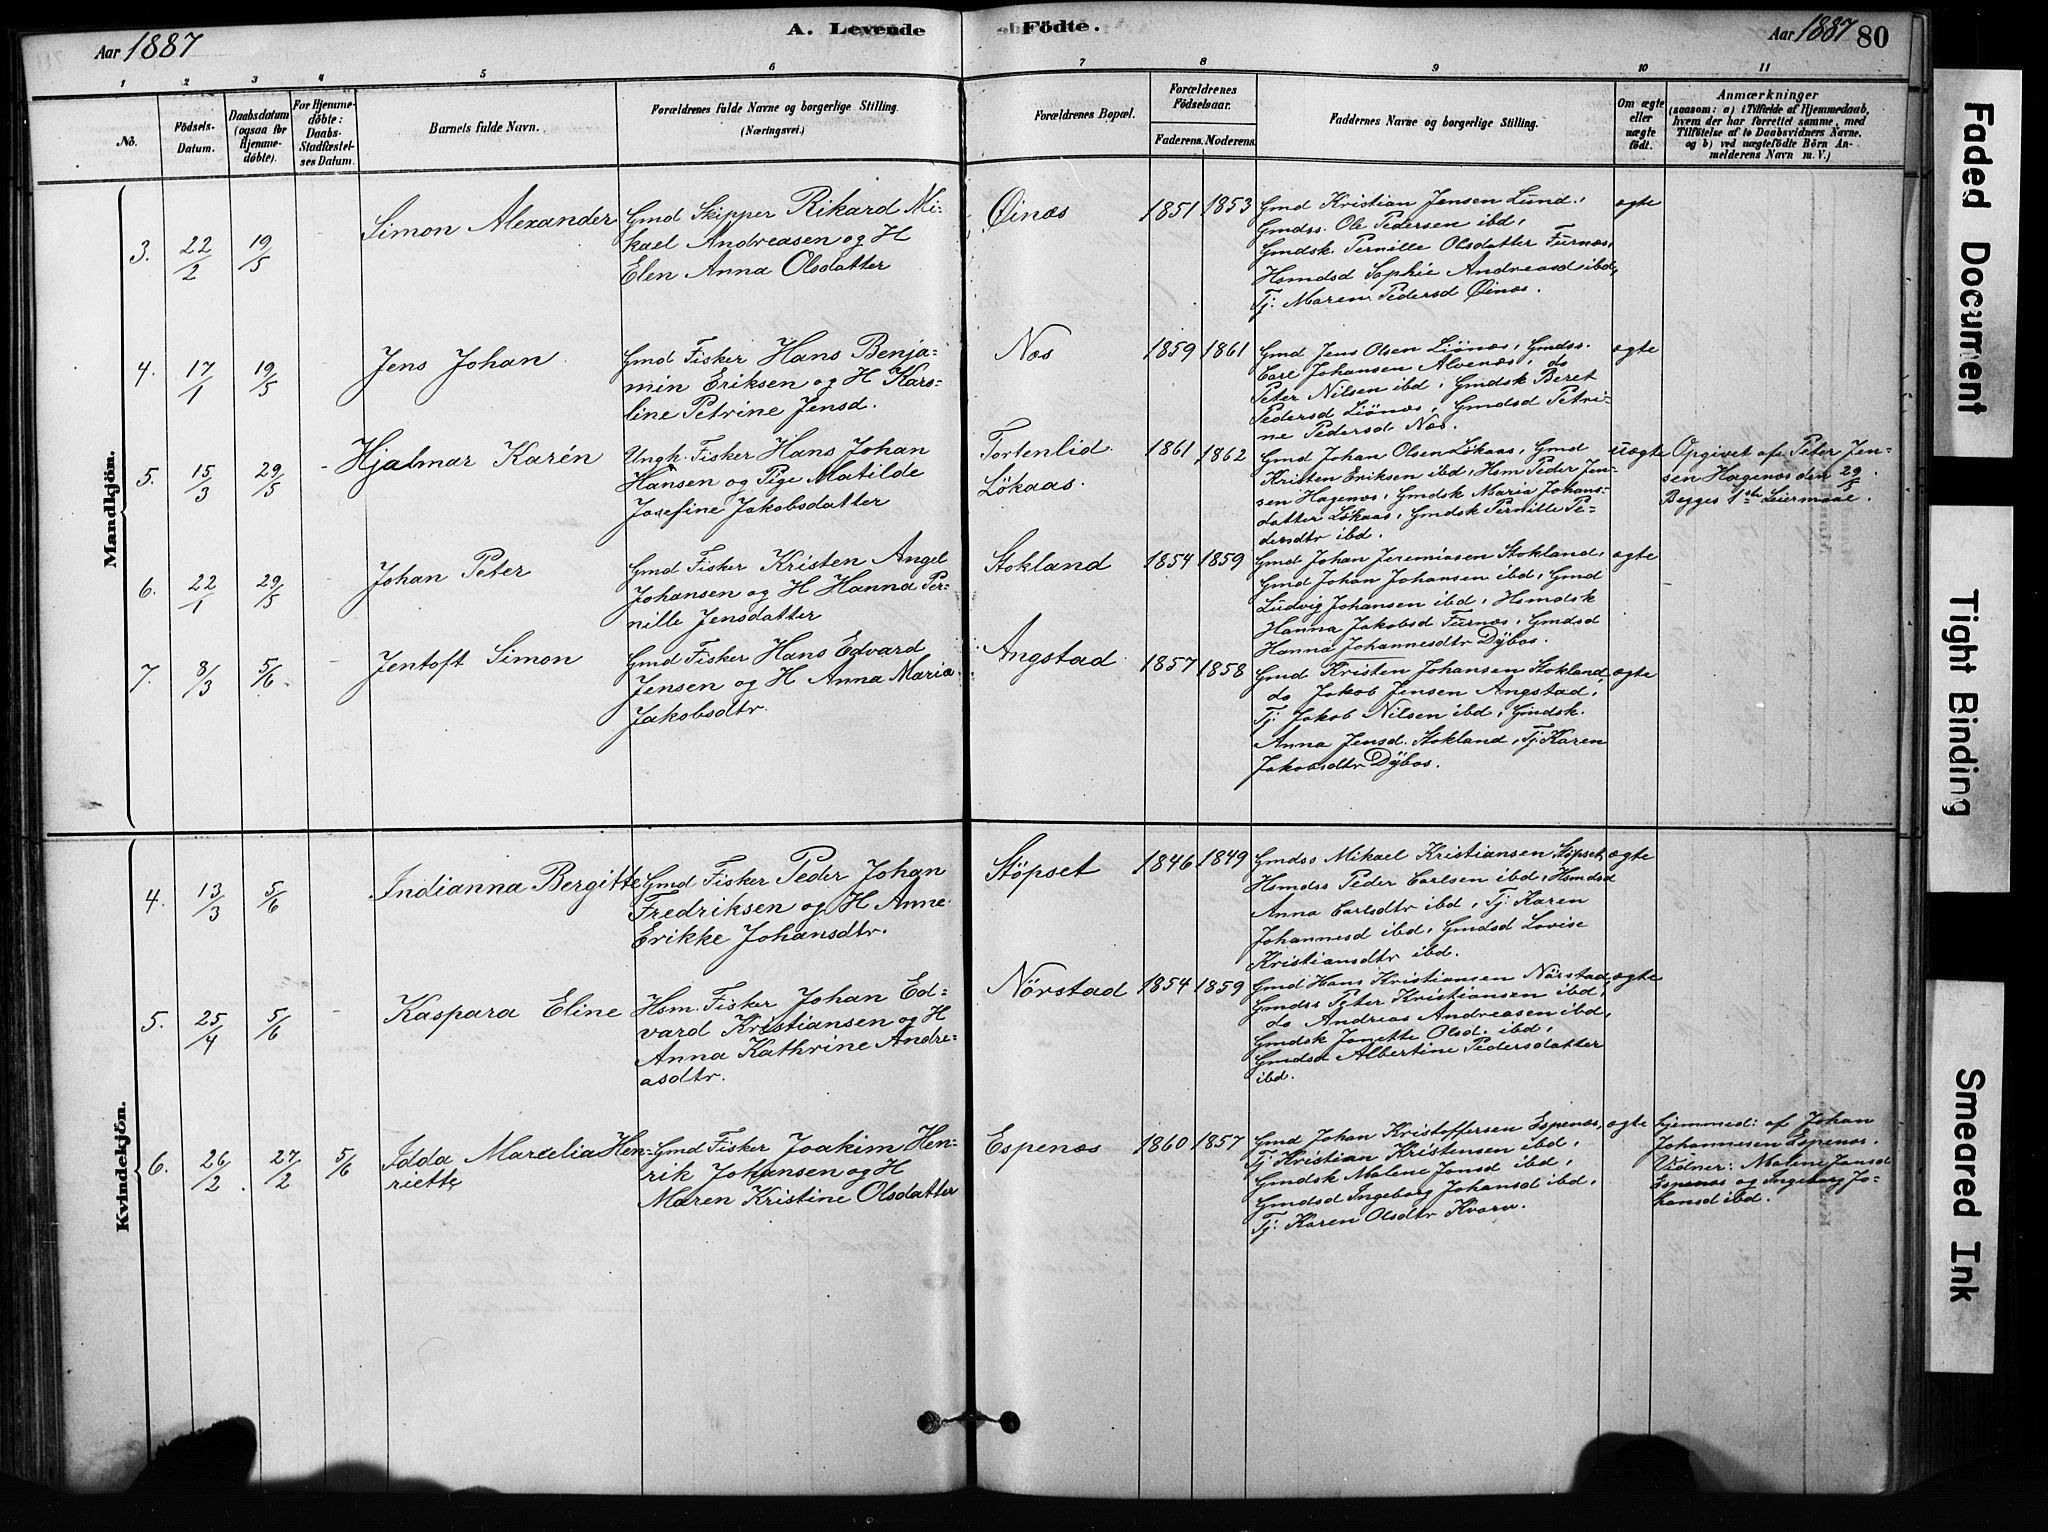 Aar 1887
A. Levende Födte.
Aar 1887 80
1 2 3 4 5 6 7 8 9 10 11
No.
Födsels-
Datum.
Daabsdatum
(ogsaa for
Hjemme-
døbte).
For Hjemme-
döbte:
Daabs-
Stadfæstel-
ses Datum.
Barnets fulde Navn.
Forældrenes fulde Navne og borgerlige Stilling.
(Næringsvei.)
Forældrenes Bopæl.
Forældrenes
Födselsaar.
Faderens. Moderens.
Faddernes Navne og borgerlige Stilling.
Om ægte
eller
uægte
födt.
Anmærkninger
(saasom: a) i Tilfælde af Hjemmedaab,
hvem der har forrettet samme, med
Tilföielse af to Daabsvidners Navne.
og b) ved uægtefödte Börn An-
melderens Navn m. V.)
Mandkjön.
3. 22/2 19/5
Simon Alexander
Gmd Skipper Rikard Mi-
kael Andreasen og H
Elen Anna Olsdatter
Øinæs
1851 1853
Gmd Kristian Jensen Lund,
Gmdss. Ole Pedersen ibd,
Gmdsk. Pernille Olsdatter Furnæs,
Hsmdsd Sophie Andreasd ibd,
Tj. Maren Pedersd Øinæs.
ægte
4. 17/1 19/5 -
Jens Johan
Gmd Fisker Hans Benja-
min Eriksen og H Karo-
line Petrine Jensd.
Næs
1859 1861
Gmd Jens Olsen Liönæs, Gmdss.
Carl Johansen Alvenæs, do
Peter Nilsen ibd, Gmdsk Beret
Pedersd Liönæs, Gmdsd Petri-
ne Pedersd. Næs.
ægte
5. 15/3 29/5 -
Hjalmar Karén
Ungk. Fisker Hans Johan
Hansen og Pige Matilde
Josefine Jakobsdatter
Tortenlid.
Lökaas.
1861 1862
Gmd Johan Olsen Lökaas, Gmd
Kristen Eriksen ibd, Hsm Peder Jen-
sen Hagenæs, Gmdsk Maria Johans-
datter Lökaas, Gmdsk Pernille Pe-
dersdtr ibd.
uægte
Opgivet af Peter Jen-
sen Hagenæs den 29/5.
Begges 1ste Leiermaal.
6. 22/1 29/5 -
Johan Peter
Gmd Fisker Kristen Angel
Johansen og H Hanna Per-
nille Jensdatter
Stokland
1854 1859
Gmd Johan Jeremiasen Stokland,
Gmd Johan Johansen ibd, Gmd
Ludvig Johansen ibd, Hsmdsk
Hanna Jakobsd Furnæs, Gmdsd
Hanna Johannesdtr Dybos.
ægte -
7. 8/3 5/6. -
Jentoft Simon
Gmd Fisker Hans Edvard
Jensen og H Anna Maria
Jakobsdtr.
Angstad
1857 1858
Gmd Kristen Johansen Stokland,
do Jakob Jensen Angstad,
Tj. Jakob Nilsen ibd, Gmdsk.
Anna Jensd. Stokland, Tj. Karen
Jakobsdtr Dybos.
ægte
Kvindekjön.
4. 13/3 5/6
Indianna Bergitte
Gmd Fisker Peder Johan
Fredriksen og H Anne
Erikke Johansdtr.
Stöpset
1846 1849
Gmdss Mikael Kristiansen Stöpset,
Hsmdss Peder Carlsen ibd, Hsmdsd
Anna Carlsdtr ibd, Tj. Karen
Johannesd ibd, Gmdsd Lovise
Kristiansdtr ibd.
ægte
5. 25/4 5/6 -
Kaspara Eline
Hsm. Fisker Johan Ed-
vard Kristiansen og H
Anna Kathrine Andre-
asdtr.
Nörstad
1854 1859
Gmd Hans Kristiansen Nörstad,
Gmdss Peter Kristiansen ibd,
do Andreas Andreasen ibd,
Gmdsk Jonette Olsd. ibd,
Gmdsd Albertine Pedersdatter
ibd.
ægte
6. 26/2. 27/2 5/6
Idda Marcelia Hen-
riette
Gmd Fisker Joakim Hen-
rik Johansen og H
Maren Kristine Olsdatter
Espenæs
1860 1857
Gmd Johan Kristoffersen Espenæs,
Tj. Kristian Kristensen ibd,
Gmdsk Malene Jonsd ibd,
Gmdsd Ingeborg Johansd ibd,
Tj. Karen Olsdtr Kvarv.
ægte
hjemmed: af Johan
Johannesen Espenæs.
Vidner: Malene Jonsd
Espenæs og Ingeborg Jo-
hansd ibd.
Faded Document
Tight Binding
Smeared Ink